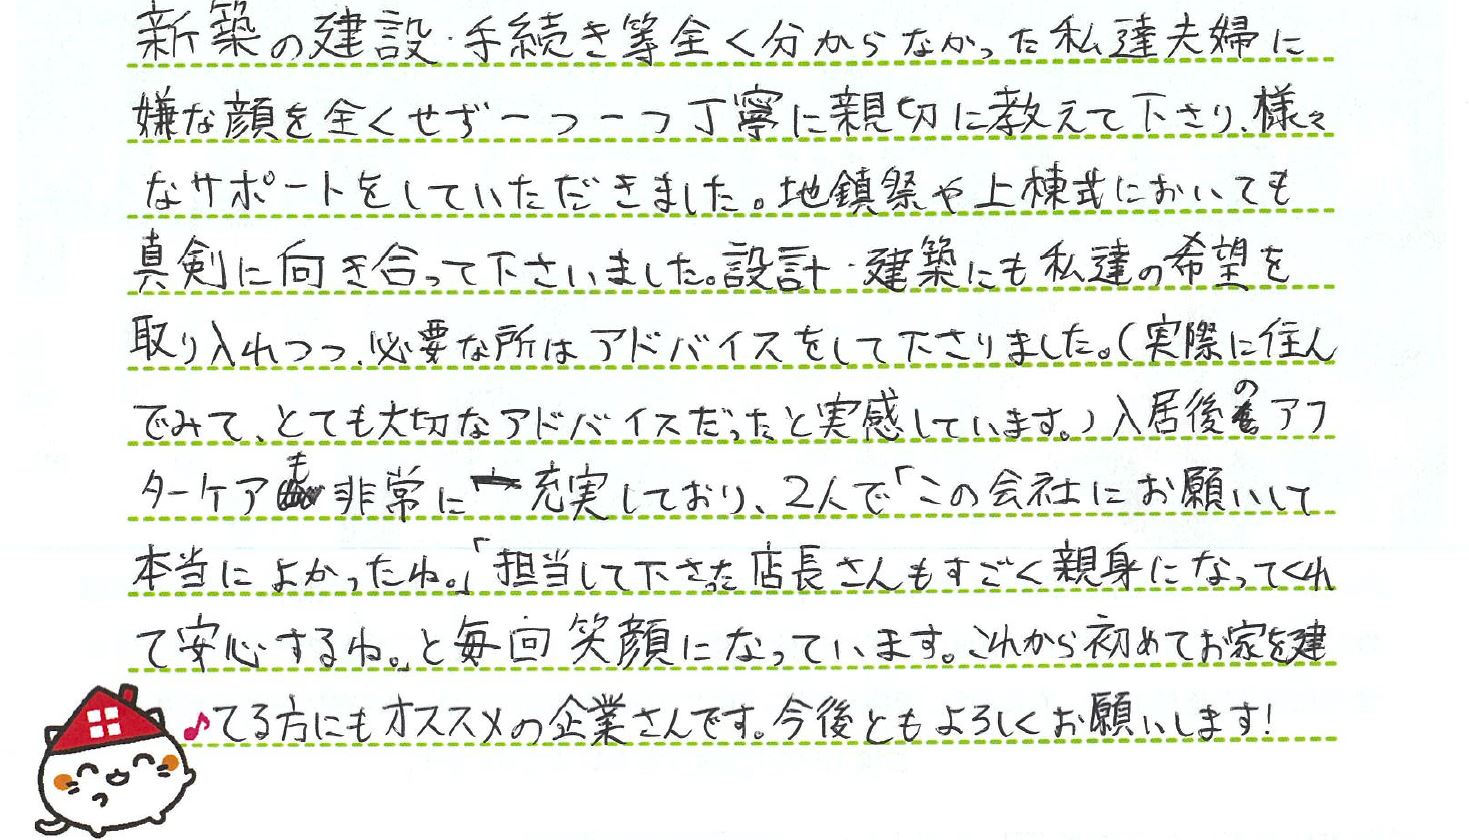 新築の建設・手続き等全く分からなかった私達夫婦に
嫌な顔を全くせず一つ一つ丁寧に親切に教えて下さり、様々
なサポートをしていただきました。地鎮祭や上棟式においても
真剣に向き合って下さいました。設計・建築にも私達の希望を
取り入れつつ、必要な所はアドバイスをして下さりました。(実際に住ん
でみて、とても大切なアドバイスだったと実感しています。)入居後のアフ
ターケアも非常に充実しており、2人で「この会社にお願いして
本当によかったね。」「担当して下さった店長さんもすごく親身になってくれ
て安心するね。」と毎回笑顔になっています。これから初めてお家を建
てる方にもオススメの企業さんです。今後ともよろしくお願いします!